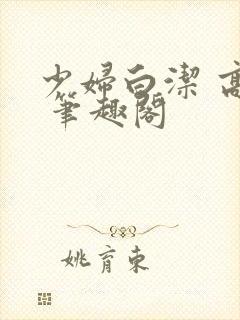 少婦白潔 高
筆趣閣
姚育東